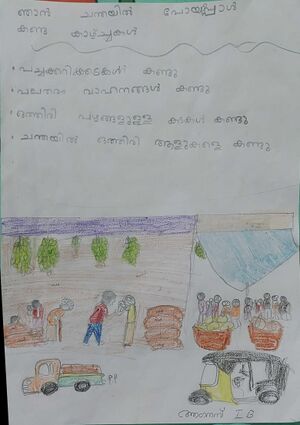 ഞാൻ ചന്തയിൽ പോയപ്പോൾ
കണ്ട കാഴ്ച്ചകൾ
• പച്ചക്കറിക്കടകൾ കണ്ടു
• പലതരം വാഹനങ്ങൾ കണ്ടു
• ഒത്തിരി പഴങ്ങളുള്ള കടകൾ കണ്ടു
• ചന്തയിൽ ഒത്തിരി ആളുകളെ കണ്ടു
I B